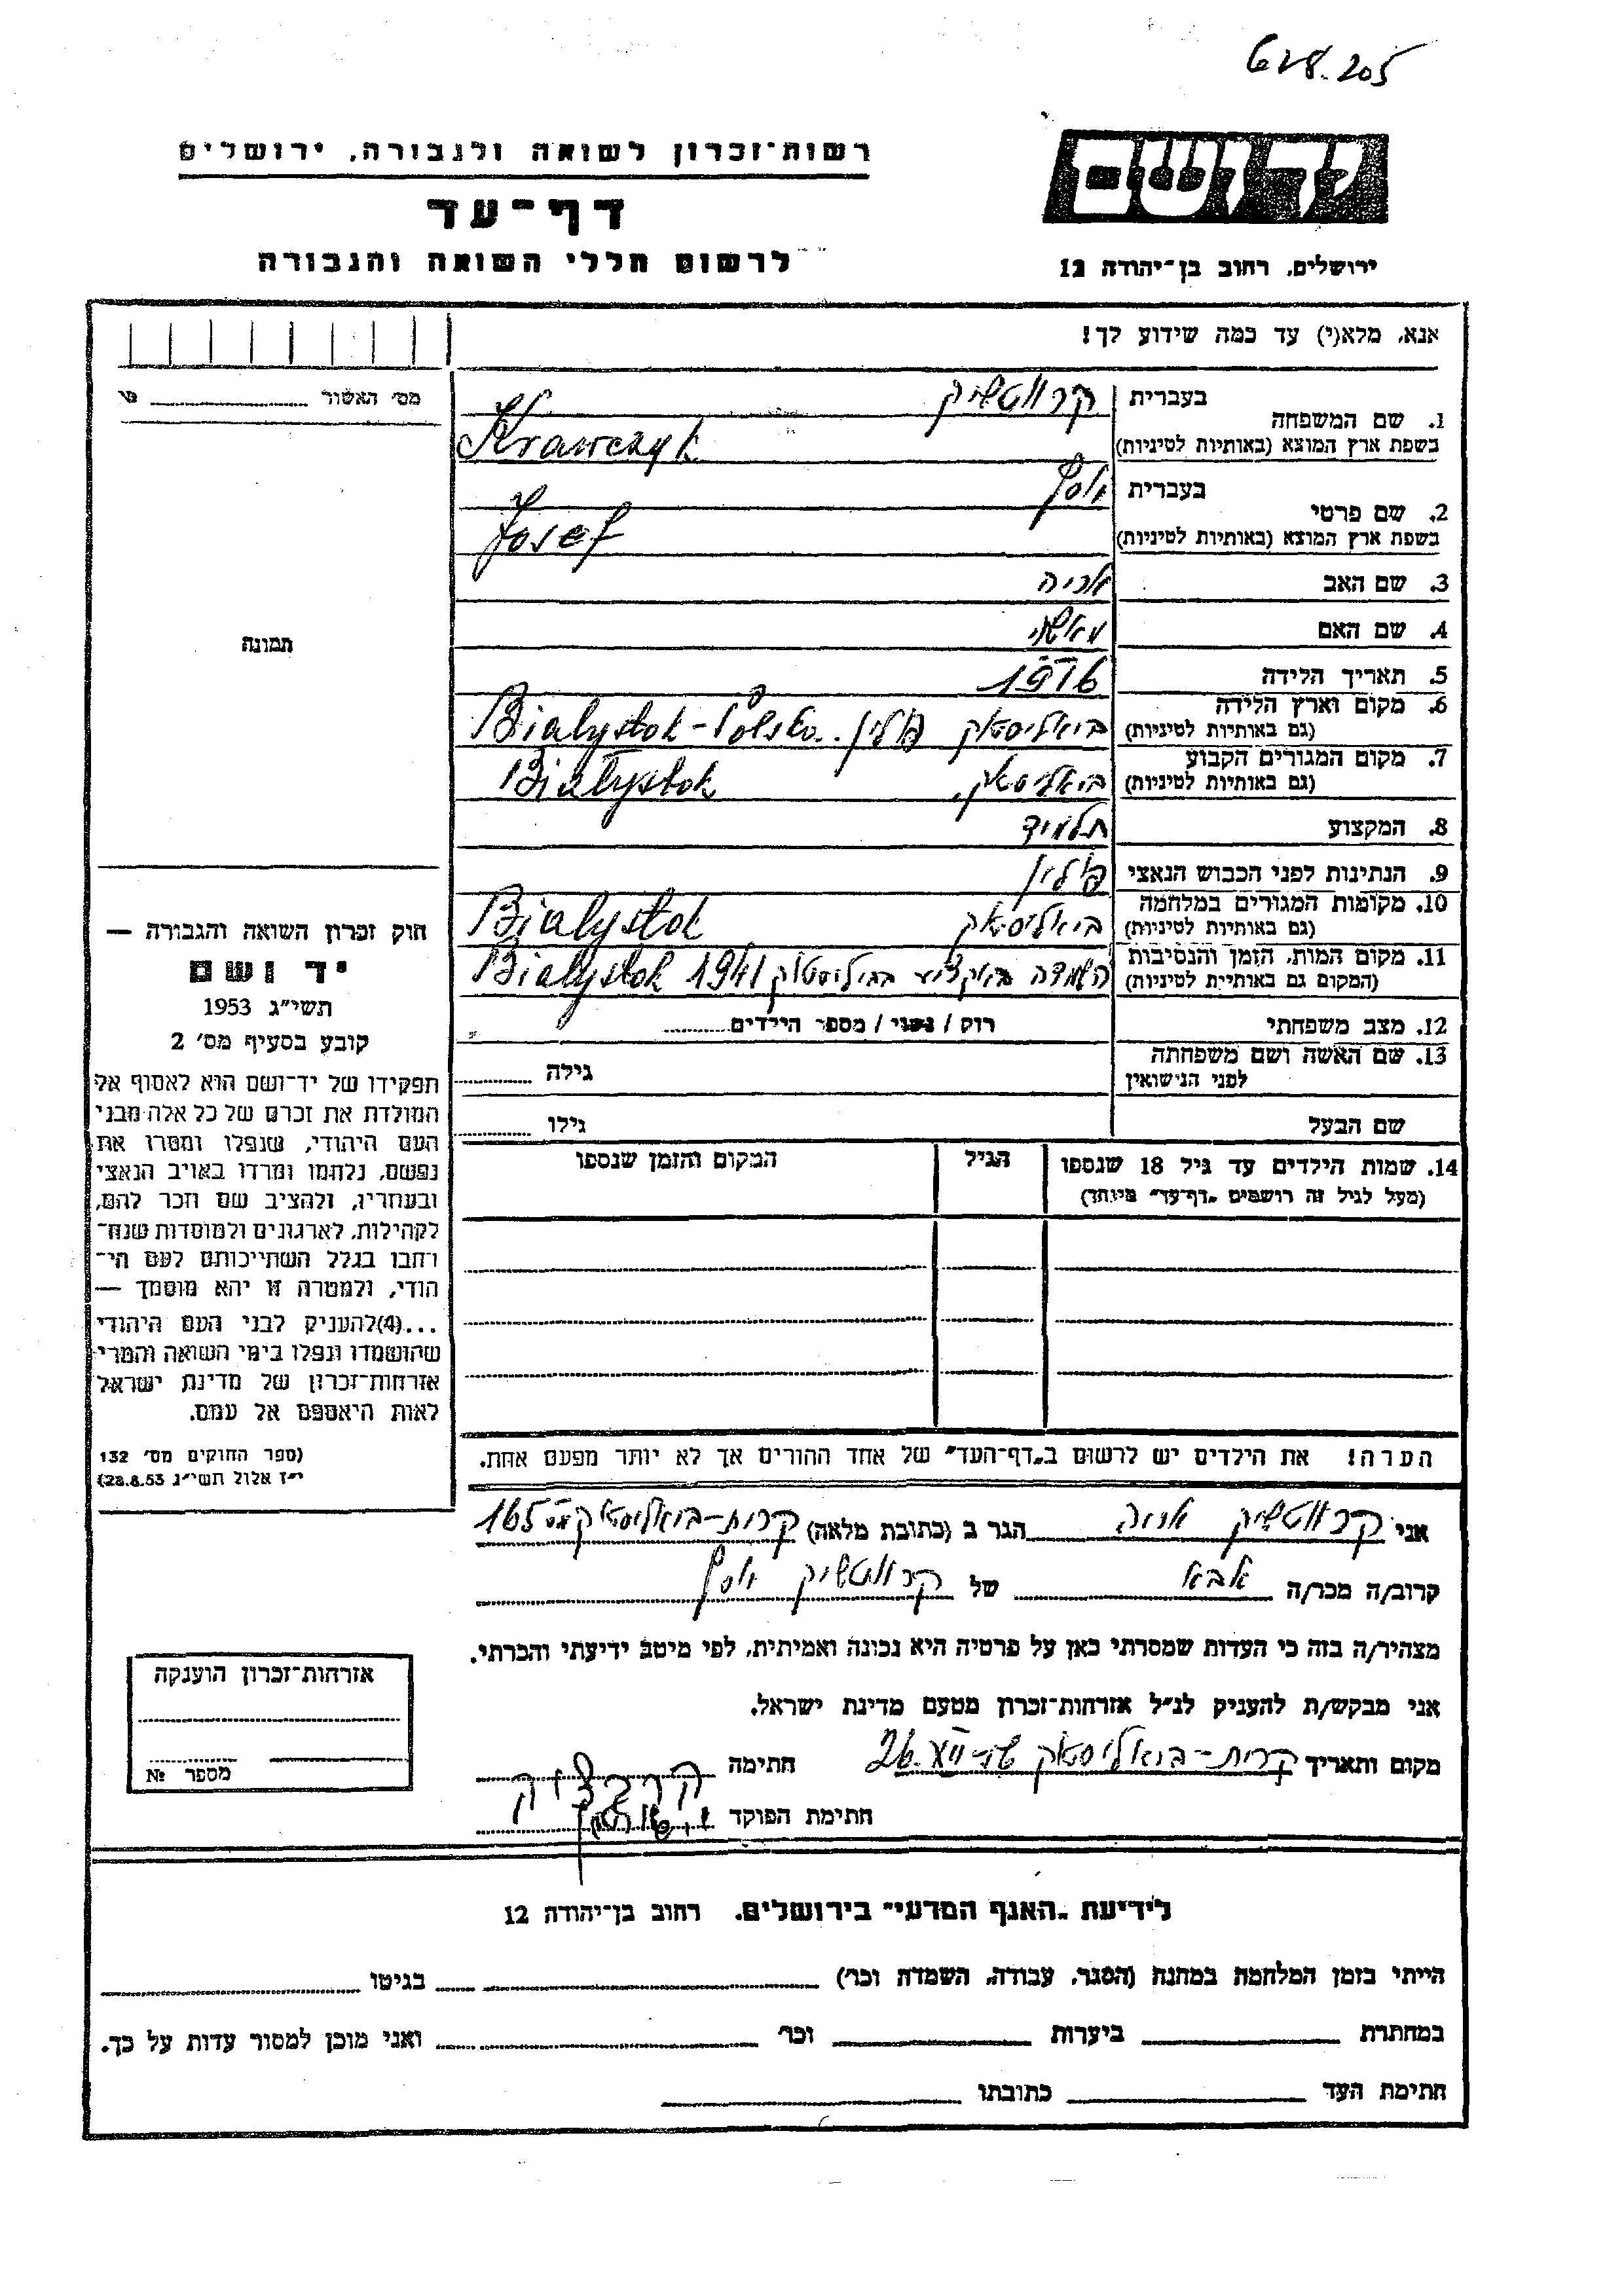 628.205
רשות־זכרון לשואה ולגבורה, ירושלים
יד ושם
דף־עד
לרשום חללי השואה והגבורה
ירושלים, רחוב בן־יהודה 12
אנא, מלא(י) עד כמה שידוע לך!
מס׳ האשור
1. שם המשפחה
בעברית קרווטשיק
בשפת ארץ המוצא (באותיות לטיניות) Krawczyk
2. שם פרטי
בעברית יוסף
בשפת ארץ המוצא (באותיות לטיניות) Josef
3. שם האב אריה
4. שם האם מאשה
5. תאריך הלידה
6. מקום וארץ הלידה
(גם באותיות לטיניות) ביאליסטאק פולין. Bialystok-Polska
7. מקום המגורים הקבוע
(גם באותיות לטיניות) ביאליסטאק, Białystok
8. המקצוע תלמיד
9. הנתינות לפני הכבוש הנאצי פולין
10. מקומות המגורים במלחמה
(גם באותיות לטיניות) ביאליסטאק Bialystok
11. מקום המות, הזמן והנסיבות
(המקום גם באותיית לטיניות) השמדה Bialystok 1941
12. מצב משפחתי רווק / נשוי / מספר הילדים
13. שם האשה ושם משפחתה
לפני הנישואין גילה
שם הבעל גילו
14. שמות הילדים עד גיל 18 שנספו הגיל המקום והזמן שנספו
(מעל לגיל זה רושמים „דף־עד״ מיוחד)
תמונה
חוק זכרון השואה והגבורה —
יד ושם
תשי״ג 1953
קובע בסעיף מס׳ 2
תפקידו של יד־ושם הוא לאסוף אל
המולדת את זכרם של כל אלה מבני
העם היהודי, שנפלו ומסרו את
נפשם, נלחמו ומרדו באויב הנאצי
ובעוזריו, ולהציב שם וזכר להם,
לקהילות, לארגונים ולמוסדות שנח־
רבו בגלל השתייכותם לעם הי־
הודי, ולמטרה זו יהא מוסמך —
...(4)להעניק לבני העם היהודי
שהושמדו ונפלו בימי השואה והמרי
אזרחות־זכרון של מדינת ישראל
לאות היאספם אל עמם.
(ספר החוקים מס׳ 132
י״ז אלול תשי״ג 28.8.53)
הערה! את הילדים יש לרשום ב„דף־העד״ של אחד ההורים אך לא יותר מפעם אחת.
אני קרווטשיק אריה הגר ב (כתובת מלאה) קרית-ביאליסטאק 165
קרוב/ה מכר/ה אבא של קרווטשיק יוסף
מצהיר/ה בזה כי העדות שמסרתי כאן על פרטיה היא נכונה ואמיתית, לפי מיטב ידיעתי והכרתי.
אני מבקש/ת להעניק לנ״ל אזרחות־זכרון מטעם מדינת ישראל.
מקום ותאריך קרית-ביאליסטאק חתימה
חתימת הפוקד
אזרחות־זכרון הוענקה
מספר №
לידיעת „האגף המדעי״ בירושלים, רחוב בן־יהודה 12
הייתי בזמן המלחמה במחנה (הסגר, עבודה, השמדה וכו׳) בגיטו
במחתרת ביערות וכו׳ ואני מוכן למסור עדות על כך.
חתימת העד כתובתו